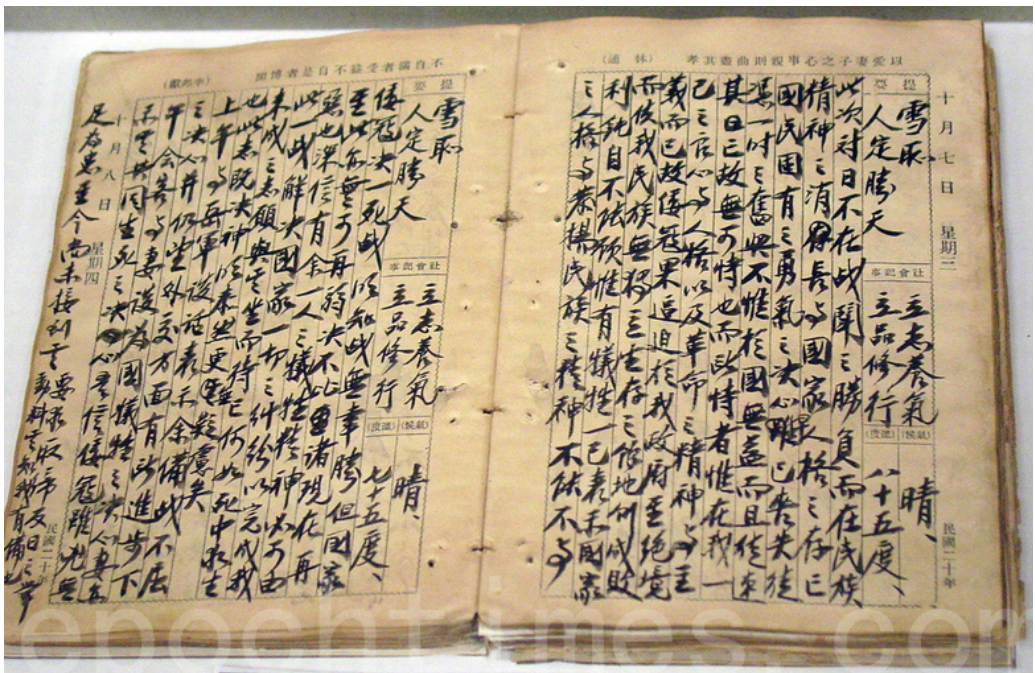 以愛妻子之心事親則曲盡其孝 (林逋)
十月七日 星期三
民國二十年
提要
雪恥
人定勝天
社會記事
立志養氣
立品修行
(氣候) 晴、
(溫度) 八十五度、
此次對日不在戰鬬之勝負而在民族
精神之消長與國家人格之存亡
國民固有之勇氣之決心早已喪失徒
憑一時之奮興不惟於國無益而且徒速
其亡故無可恃也而所恃者惟在我一
己之良心與人格以及革命之精神與主
義而已故倭寇果逼迫於我政府至絕境
而使我民族無獨立生存之餘地則成敗
利鈍自不能顧惟有犧牲一己表示國家
之人格與發揚民族之精神不能不與
不自滿者受益不自是者博聞 (李邦獻)
十月八日 星期四
民國二十年
提要
雪恥
人定勝天
社會記事
立志養氣
立品修行
(氣候) 晴、
(溫度) 七十五度、
倭寇決一死戰明知此戰無幸勝但國家
至此亦無可再弱決不比諸現在再
惡也深信有余一人之犧牲精神必可由
此一戰解決國家一切之糾紛以完成我
未成之志願與其坐而待亡何如死中求生
也此志既決神明泰然更無疑慮矣
上午與海軍談話表示余備戰不屈
之決心并仍望外交方面有所進步下
午會客與妻談為國犧牲之決心吾妻亦
示其共同生死之決心吾信倭寇雖兇無
足為患至今尚未接到其要求取 反日之
epochtimes.com